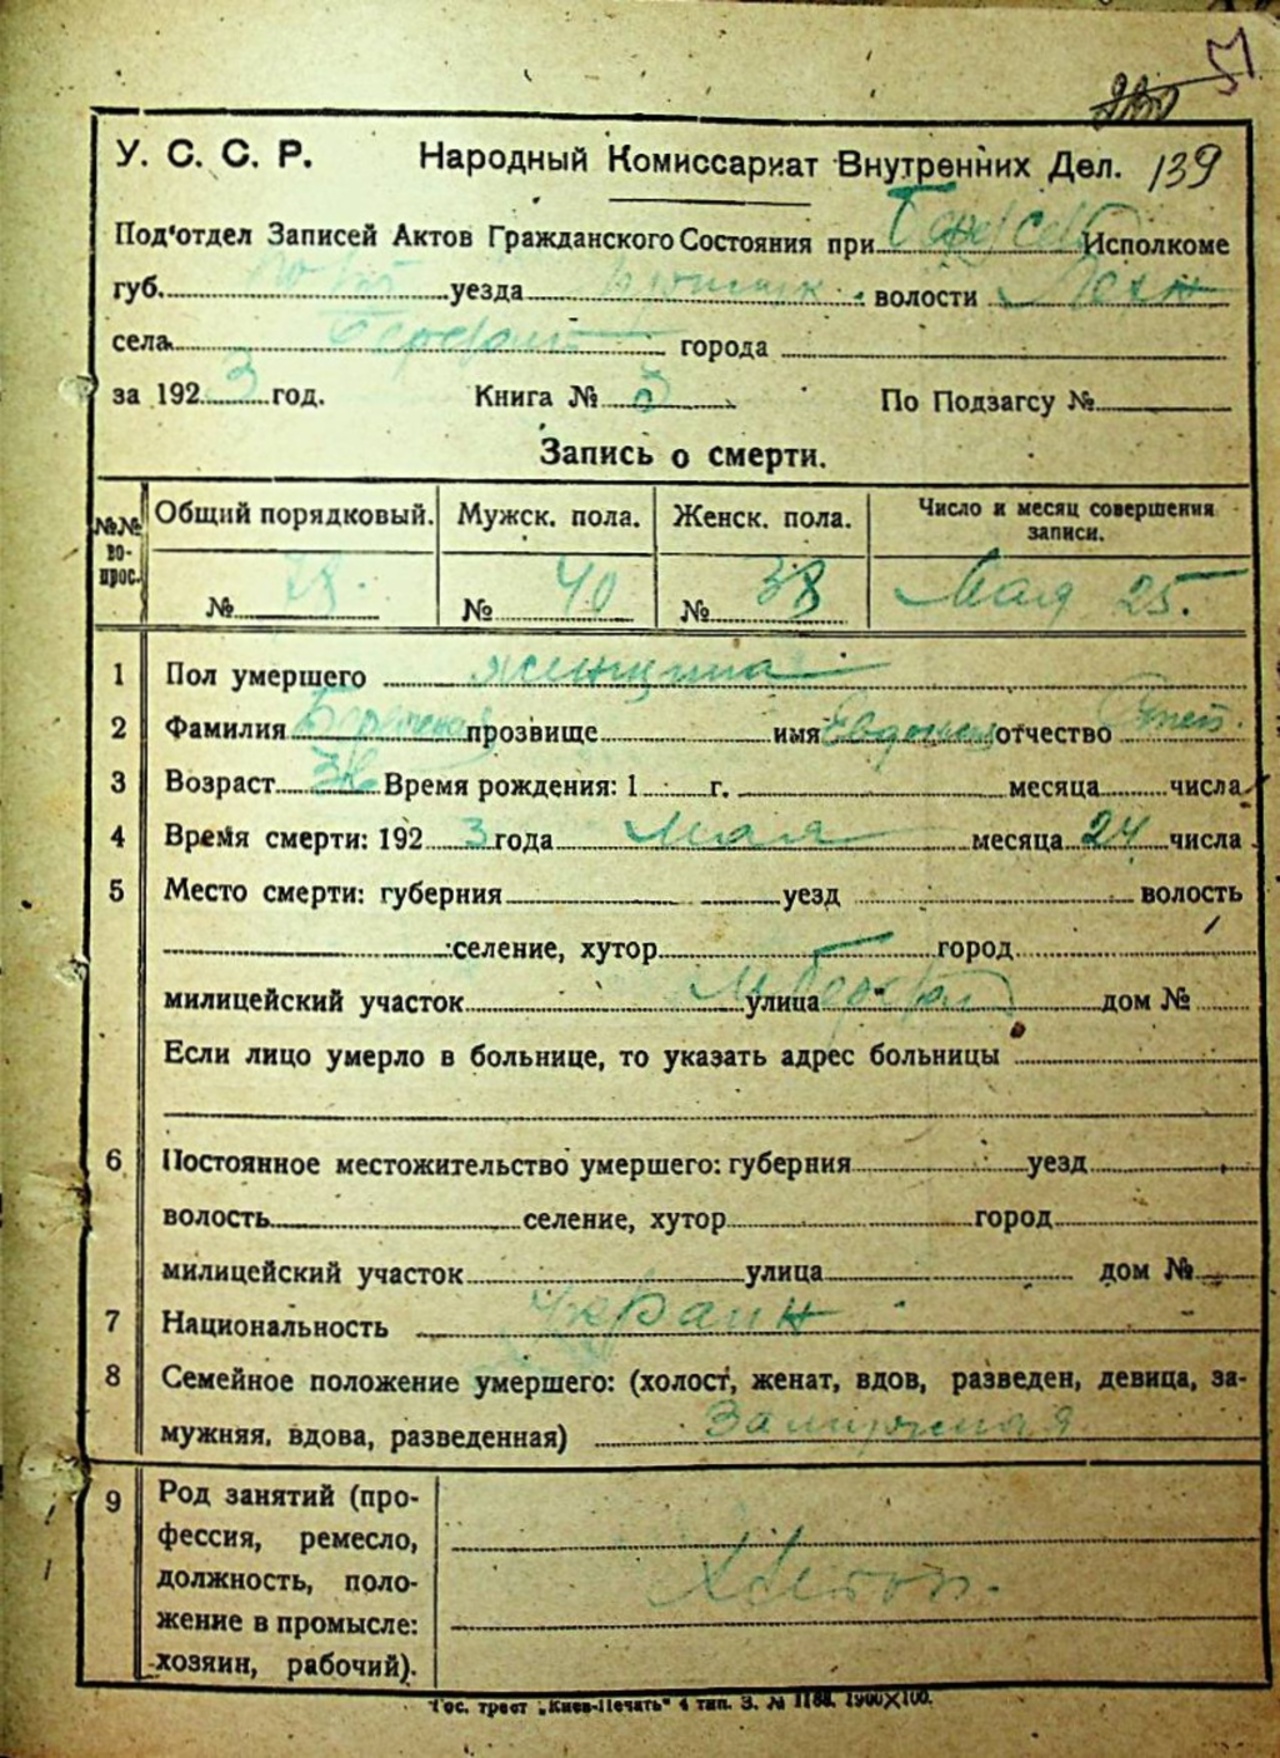 51
У. С. С. Р. Народный Комиссариат Внутренних Дел. 139
Под'отдел Записей Актов Гражданского Состояния при Исполкоме
губ. уезда волости
села города
за 192 3 год. Книга № 3 По Подзагсу №
Запись о смерти.
№№ вопрос. Общий порядковый. Мужск. пола. Женск. пола. Число и месяц совершения записи.
№ 78. № 40 № 38 Мая 25.
1 Пол умершего женщина
2 Фамилия прозвище имя отчество
3 Возраст Время рождения: 1 г. месяца числа
4 Время смерти: 192 3 года Мая месяца 24 числа
5 Место смерти: губерния уезд волость
селение, хутор город
милицейский участок улица дом №
Если лицо умерло в больнице, то указать адрес больницы
6 Постоянное местожительство умершего: губерния уезд
волость селение, хутор город
милицейский участок улица дом №
7 Национальность Украин
8 Семейное положение умершего: (холост, женат, вдов, разведен, девица, за-
мужняя, вдова, разведенная) Замужная
9 Род занятий (про-
фессия, ремесло,
должность, поло-
жение в промысле:
хозяин, рабочий).
Гос. трест „Киев-Печать" 4 тип. З. № 1188. 1900×100.